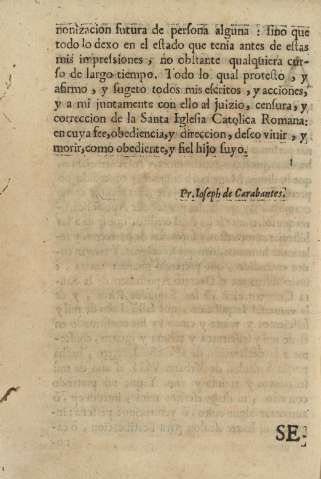 nonizacion futura de persona alguna : sino que
todo lo dexo en el estado que tenia antes de estas
mis impressiones , no obstante qualquiera cur-
so de largo tiempo. Todo lo qual protesto , y
afirmo , y sugeto todos mis escritos , y acciones,
y a mi juntamente con ello al juizio, censura, y
correccion de la Santa Iglesia Catolica Romana:
en cuya fee, obediencia, y direccion, deseo viuir , y
morir, como obediente, y fiel hijo suyo.
Fr. Ioseph de Carabantes.
SE-